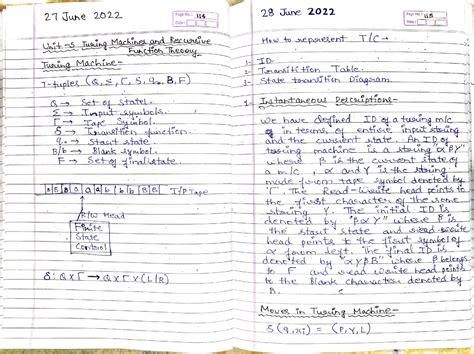 27 June 2022
Page No. 114
Date
Unit-5 Turing Machines and Recursive
Function Theory
Turing Machine-
7-tuples (Q, Σ, Γ, δ, q₀, B, F)
Q → Set of states.
Σ → Input symbols.
Γ → Tape Symbol.
δ → Transition function.
q₀ → start state.
B/b → Blank symbol.
F → Set of final state.
B B a a b b b B B I/P Tape
R/W Head
Finite
State
Control
δ: Q×Γ → Q×Γ×(L/R)
28 June 2022
Page No. 115
Date
How to represent T/C →
1- ID
2- Transition Table.
3- State transition Diagram.
1- Instantaneous Descriptions-
We have defined ID of a turing m/c
in terms of entire input string
and the current state. An ID of
turing machine is a string "αβγ"
where β is the current state of
a m/c, α and γ is the string
made from tape symbol denoted by
Γ. The Read-Write head points to
the first character of the some
string γ. The initial ID is
denoted by "βαγ" where β is
the start state and read-write
head points to the first symbol of
α from left. The final ID is
denoted by "αγβB" where β belongs
to F and read write head points
to the Blank character denoted by
B.
Moves in Turing Machine-
δ(q,xi) = (P,Y,L)